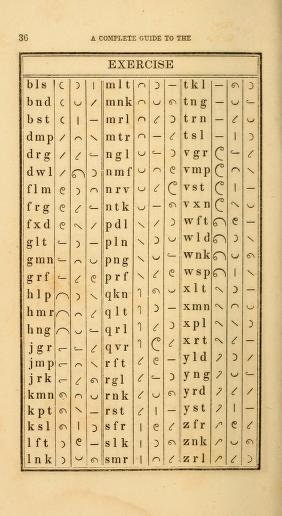 36 A COMPLETE GUIDE TO THE
EXERCISE
bls mlt tkl
bnd mnk tng
bst mrl trn
dmp mtr tsl
drg ngl vgr
dwl nmf vmp
flm nrv vst
frg ntk vxn
fxd pdl wft
glt pln wld
gmn png wnk
grf prf wsp
hlp qkn xlt
hmr qlt xmn
hng qrl xpl
jgr qvr xrt
jmp rft yld
jrk rgl yng
kmn rnk yrd
kpt rst yst
ksl sfr zfr
lft slk znk
lnk smr zrl